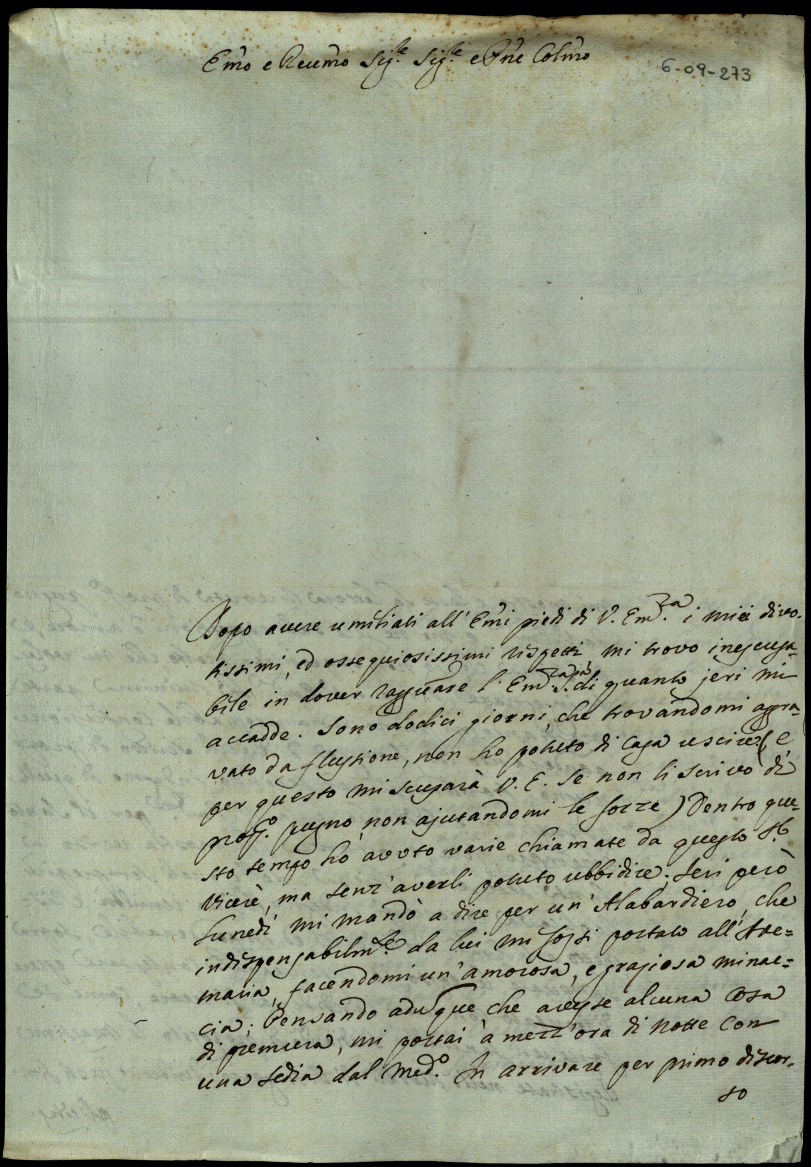 Em̃o e Reuem̃o Sig.re Sig.re e Pñe Colm̃o
6-09-273
Dopo auere umiliati all'Em̃i piedi di V. Em.za i miei divo-
tissimi, ed ossequiosissimi rispetti mi trovo inescusa-
bile in dover raggüare l'Em.za di quanto jeri mi
accadde. Sono dodici giorni, che trovandomi aggra-
vato da flussione, non ho potuto di casa uscire (e
per questo mi scusarà V. E. se non li scrivo di
prop.o pugno, non ajutandomi le forze) Dentro que-
sto tempo hò avuto varie chiamate da questo S.r
Vicerè, ma senz'averli potuto ubbidire. Jeri però
Lunedì mi mandò a dire per un'Alabardiero, che
indispensabilm.te da lui mi fossi portato all'Are-
maria, facendomi un'amorosa, e graziosa minac-
cia; Pensando adunque che avesse alcuna cosa
di premura, mi portai à mezz'ora di notte con
una sedia dal med.o In arrivare per primo discor-
so